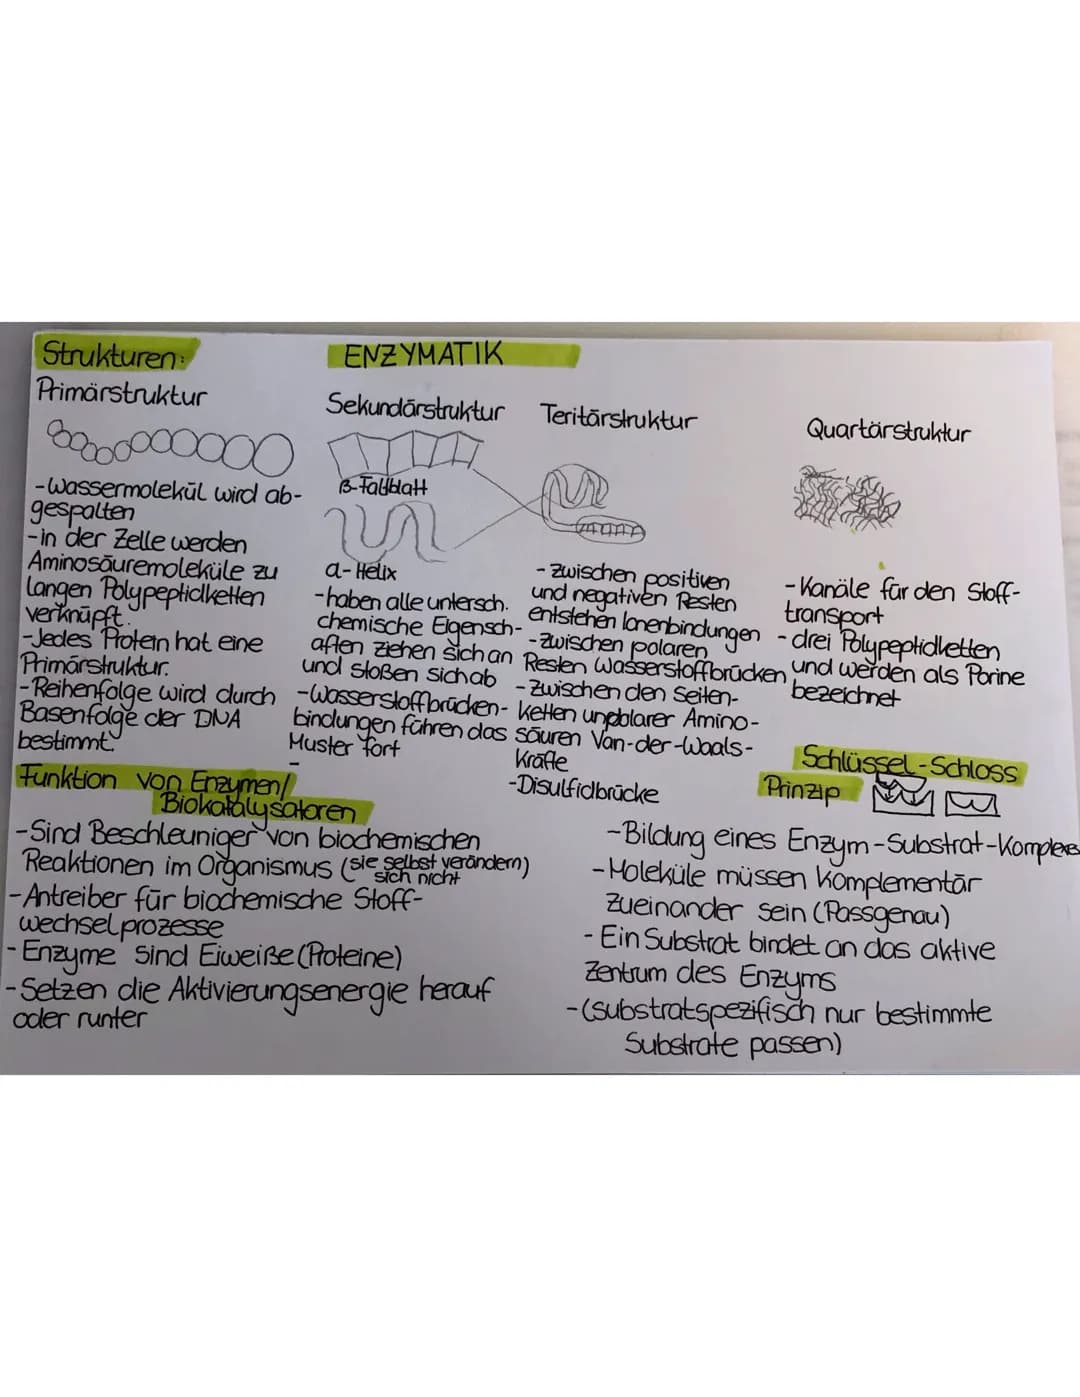 Strukturen:
ENZYMATIK
Primärstruktur
-Wassermolekül wird ab-
gespalten
-in der Zelle werden
Aminosäuremoleküle zu
langen Polypeptidketten
verknüpft.
-Jedes Protein hat eine
Primärstruktur.
-Reihenfolge wird durch
Basenfolge der DNA
bestimmt.
Sekundärstruktur
β-Faltblatt
α-Helix
-haben alle untersch.
chemische Eigensch-
aften ziehen sich an
und stoßen sich ab
-Wasserstoffbrücken-
bindungen führen das
Muster fort
-
Teritärstruktur
-zwischen positiven
und negativen Resten
entstehen Ionenbindungen
-zwischen polaren
Resten Wasserstoffbrücken
-zwischen den Seiten-
ketten unpolarer Amino-
säuren Van-der-Waals-
Kräfte
-Disulfidbrücke
Quartärstruktur
-Kanäle für den Stoff-
transport
-drei Polypeptidketten
und werden als Porine
bezeichnet
Funktion von Enzymen/
Biokatalysatoren
-Sind Beschleuniger von biochemischen
Reaktionen im Organismus (sie selbst verändern)
sich nicht
-Antreiber für biochemische Stoff-
wechselprozesse
-Enzyme sind Eiweiße (Proteine)
-Setzen die Aktivierungsenergie herauf
oder runter
Schlüssel-Schloss
Prinzip
-Bildung eines Enzym-Substrat-Komplexes
-Moleküle müssen komplementär
zueinander sein (Passgenau)
-Ein Substrat bindet an das aktive
Zentrum des Enzyms
-(substratspezifisch nur bestimmte
Substrate passen)